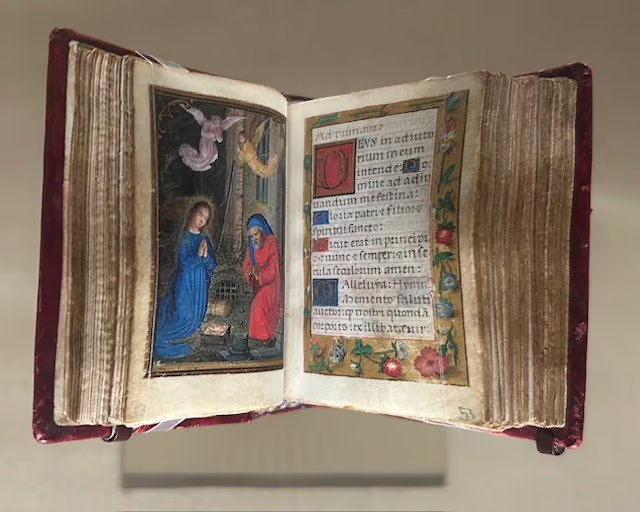 Ad primam:
DEVS in adiuto
rium meum
intende: Do
mine ad adiu
uandum me festina:
Gloria patri ⁊ filio ⁊
spiritui sancto:
Sicut erat in principi
o ⁊ nunc ⁊ semper: ⁊ in se
cula seculorum amen:
Alleluya: Hymn
Memento saluti
auctor: ꝙ nostri quondā
corporis: ex illibata uir
53